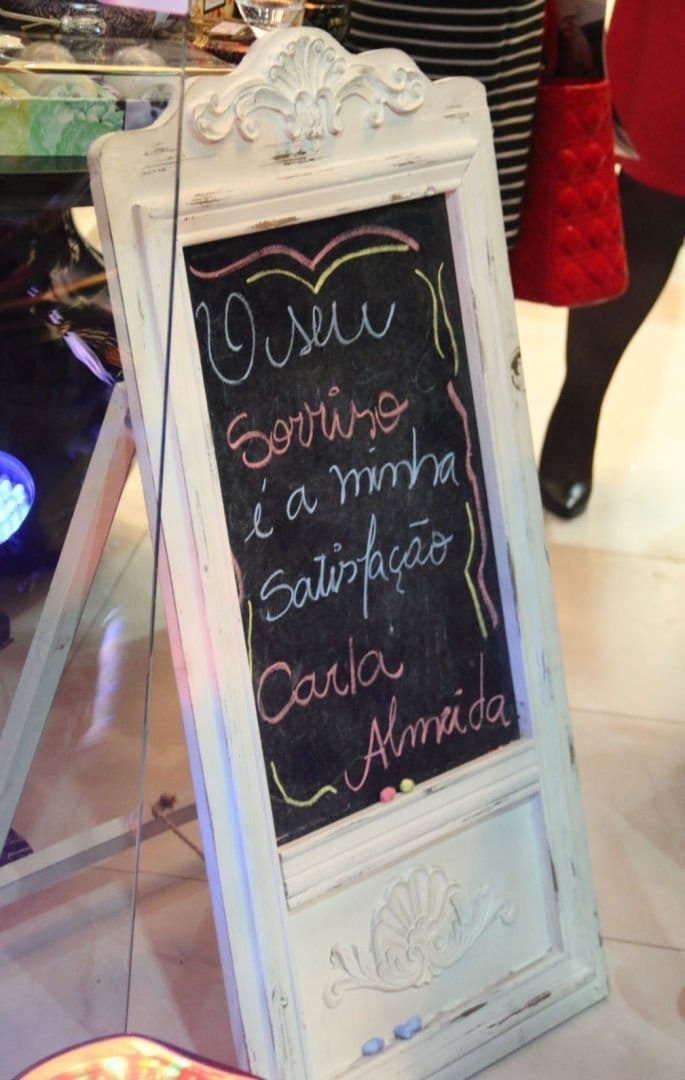 O seu
sorriso
é a minha
satisfação
Carla
Almeida